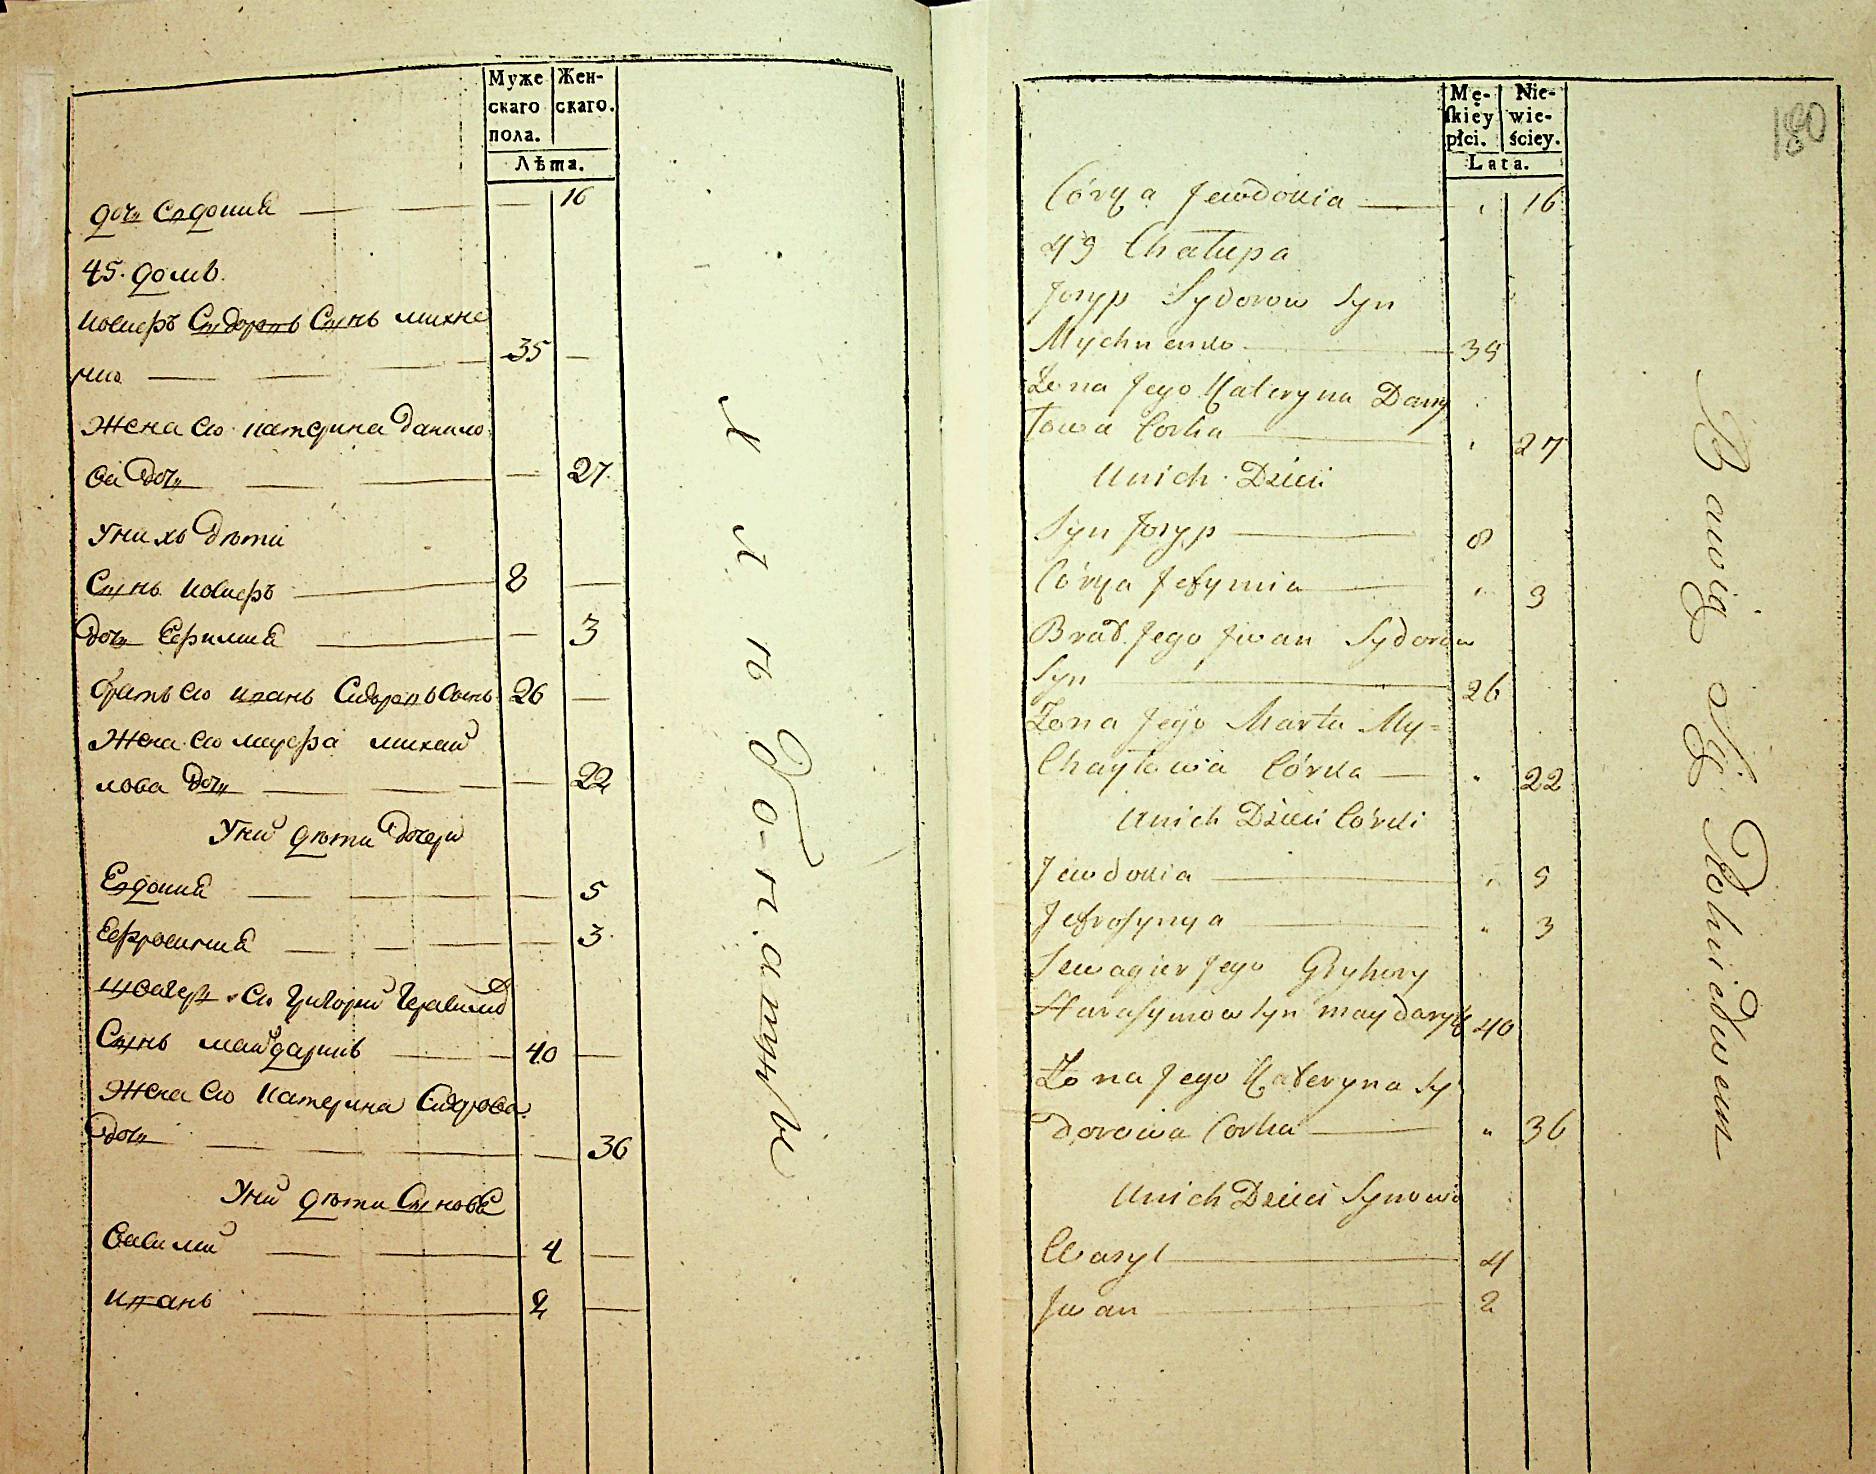 Муже
скаго
пола.
Жен-
скаго.
Лѣта.
дочь Евдокия — 16
45. домъ
Иосифъ Сидоровъ Сынъ михне
нко — 35 —
Жена его катерина данило
ва дочь — 27
У нихъ дѣти
Сынъ Иосифъ — 8 —
дочь Ефимия — 3
братъ его иванъ Сидоровъ сынъ 26 —
Жена его марфа михай
лова дочь — 22
У них дѣти дочери
Евдокия — 5
Ефросиния — 3
швагер его Григорий Герасимов
Сынъ майдарикъ — 40 —
Жена его Катерина Сидорова
дочь — 36
У них дѣти Сыновѣ
Василий — 4 —
иванъ — 2 —
Mę-
skiey
płci.
Nie-
wie-
ściey.
Lata.
180
Córka Jewdokia — " 16
45 Chałupa
Josyp Sydorow Syn
Mychnenko — 35
Żona Jego Kateryna Dany
łowa Corka — " 27
Unich Dzieci
Syn Josyp — 8
Córka Jefymia — " 3
Brat Jego Iwan Sydorow
Syn — 26
Żona Jego Marta My=
chayłowa Córka — " 22
Unich Dzieci Córki
Jewdokia — " 5
Jefrosynya — " 3
Szwagier Jego Gryhory
Harasymow syn maydaryk 40
Żona Jego Kateryna Sy
dorowa Corka — " 36
Unich Dzieci Synowie
Wasyl — 4
Iwan — 2
Bawią się Rolnictwem